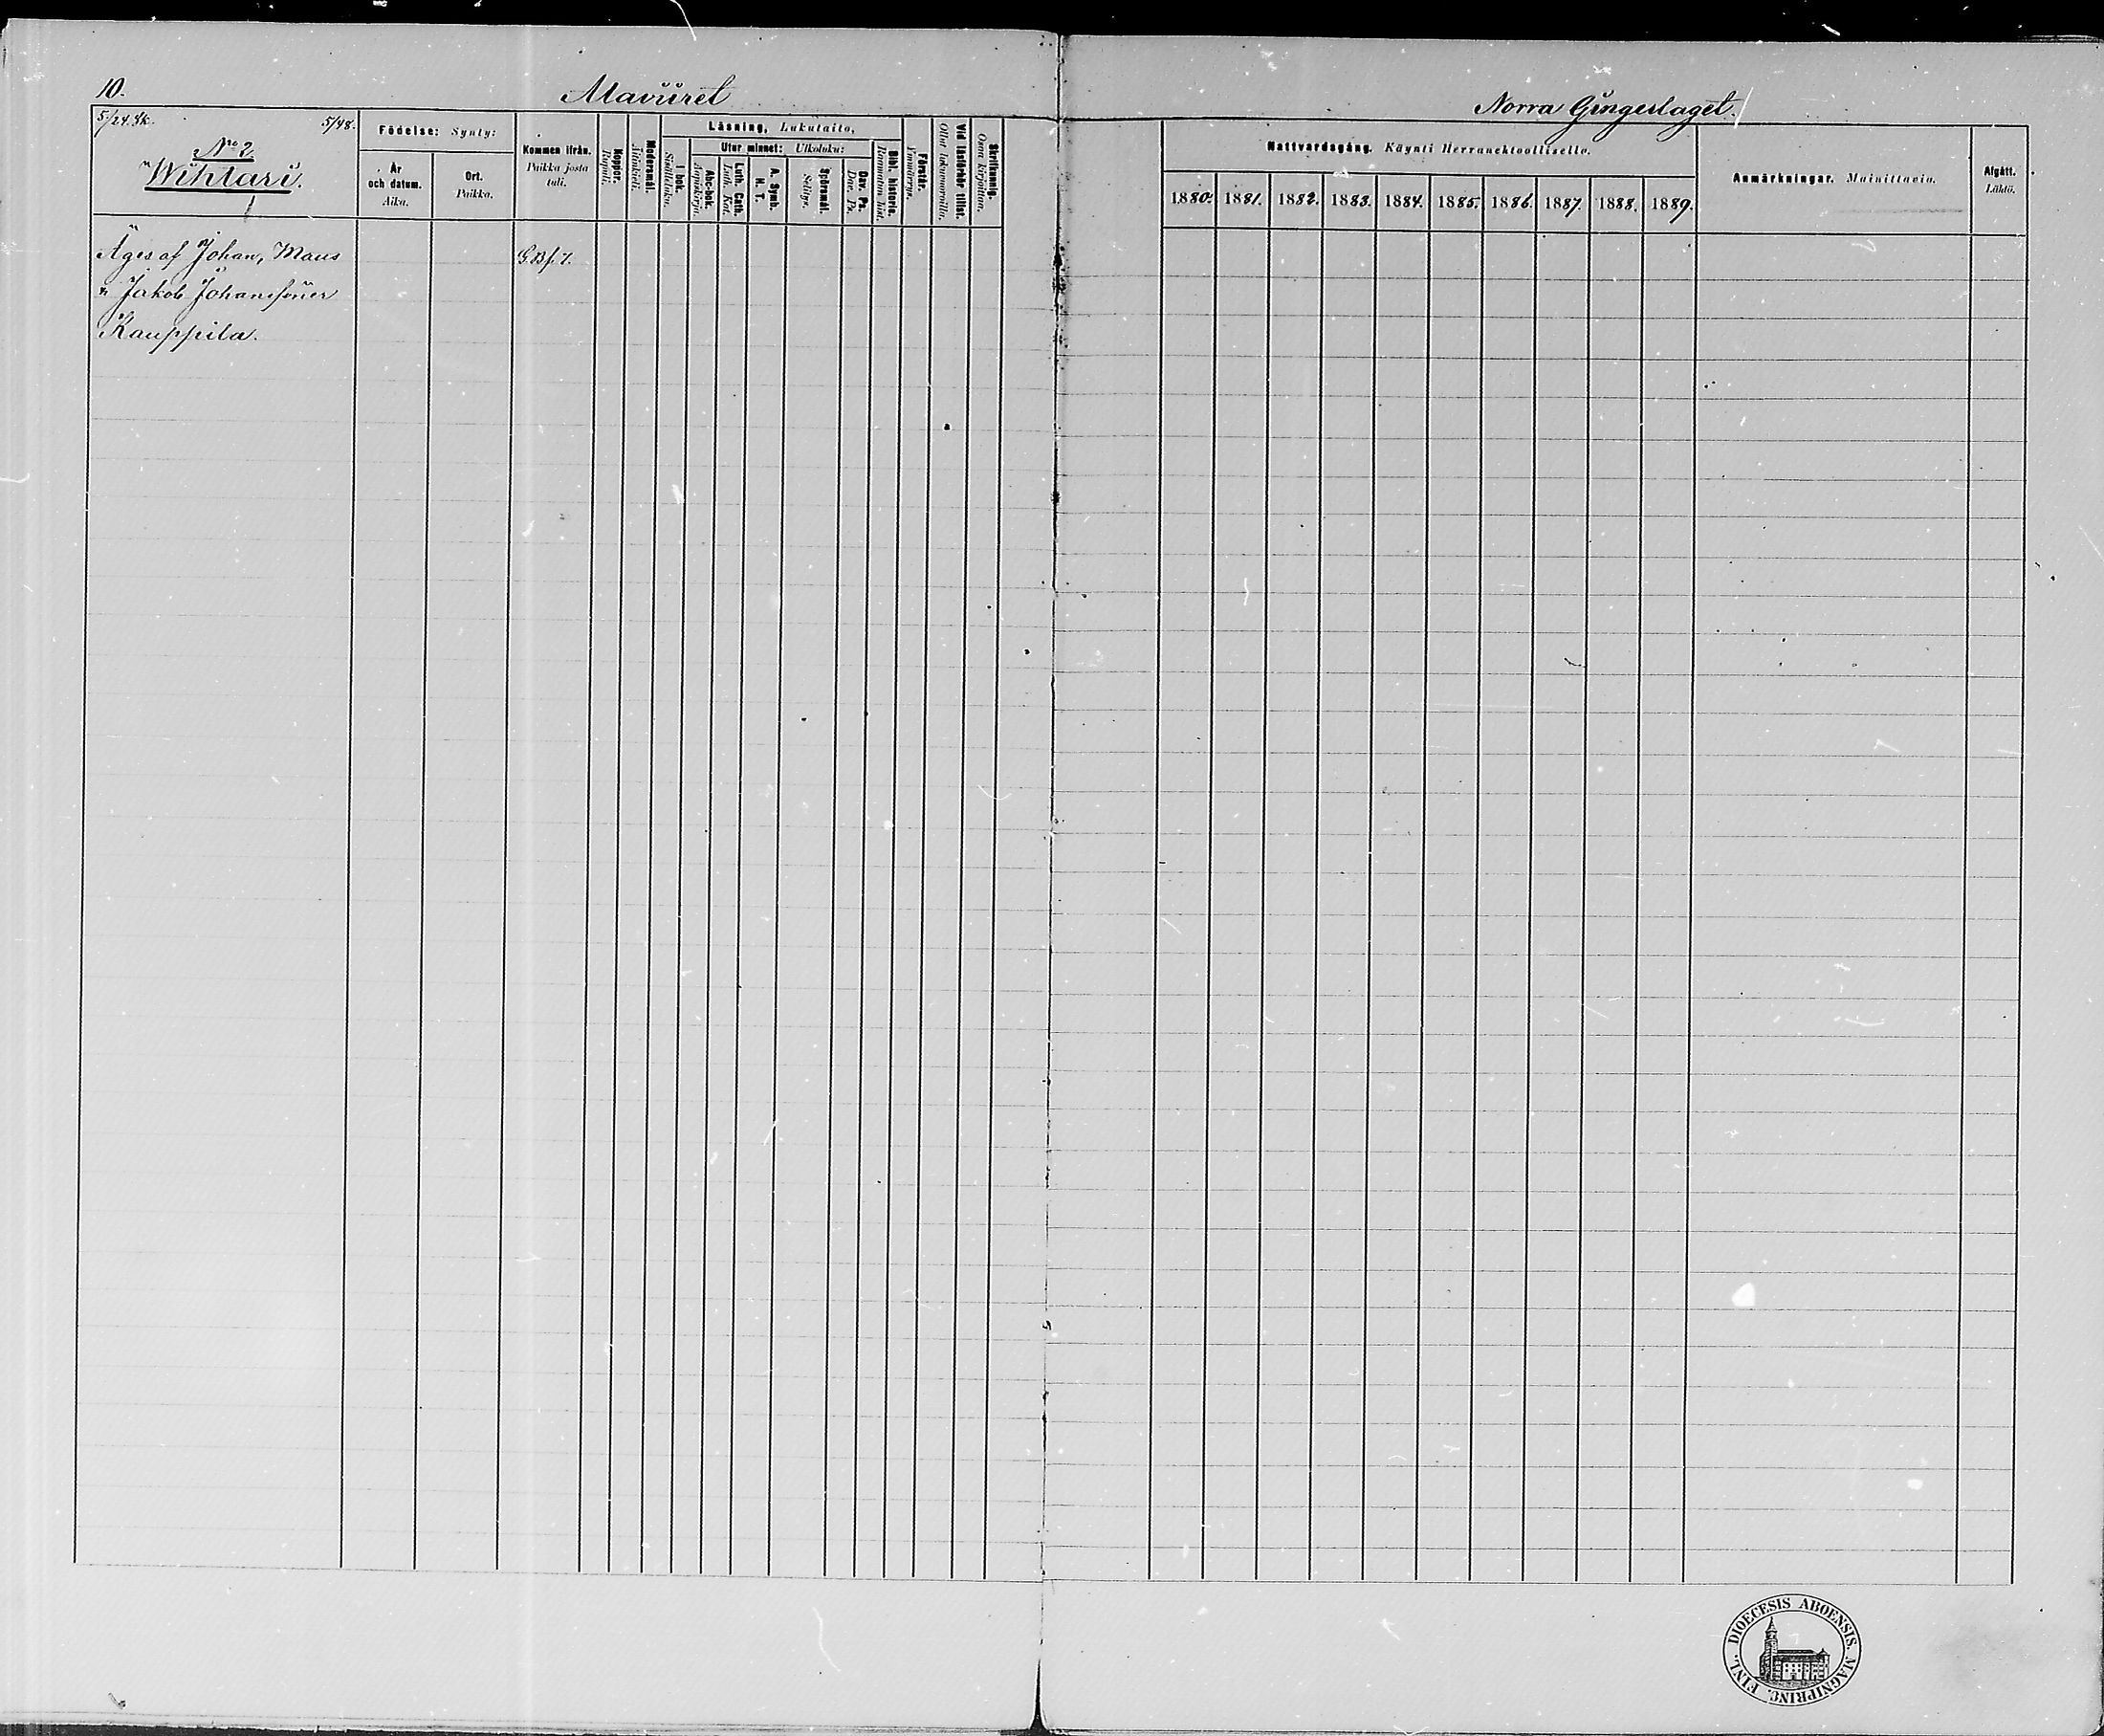 10.
Alavüret
Norra Gingerlaget.
5/24. Sk.
5/48.
No 2.
Wihlari.
Födelse: Synty:
År
och datum.
Aika.
Ort.
Paikka.
Kommen ifrån.
Paikka josta
tuli.
Koppor.
Rupuli.
Modersmål.
Äitinkieli.
Läsning, Lukutaito,
I bok.
Sisältäluku.
Utur minnet: Ulkoluku:
Abc-bok.
Aapiskirja.
Luth. Cath.
Luth. Kat.
A. Symb.
H. T.
Spörsmål.
Selitys.
Dav. Ps.
Dav. Ps.
Bibl. historia.
Raamatun hist.
Förstår.
Ymmärrys.
Vid läsförhör tillst.
Ollut lukuvuoroilla.
Skriftkunnig.
Osaa kirjoittaa.
Nattvardsgång. Käynti Herranehtoollisella.
1880. 1881. 1882. 1883. 1884. 1885. 1886. 1887. 1888. 1889.
Anmärkningar. Mainittavia.
Afgått.
Lähtö.
Äges af Johan, Maus
n Jakob Johanssöner
Kauppila.
G.B.f. 7.
DIOECESIS ABOENSIS. MAGNIPRINC. FINL.